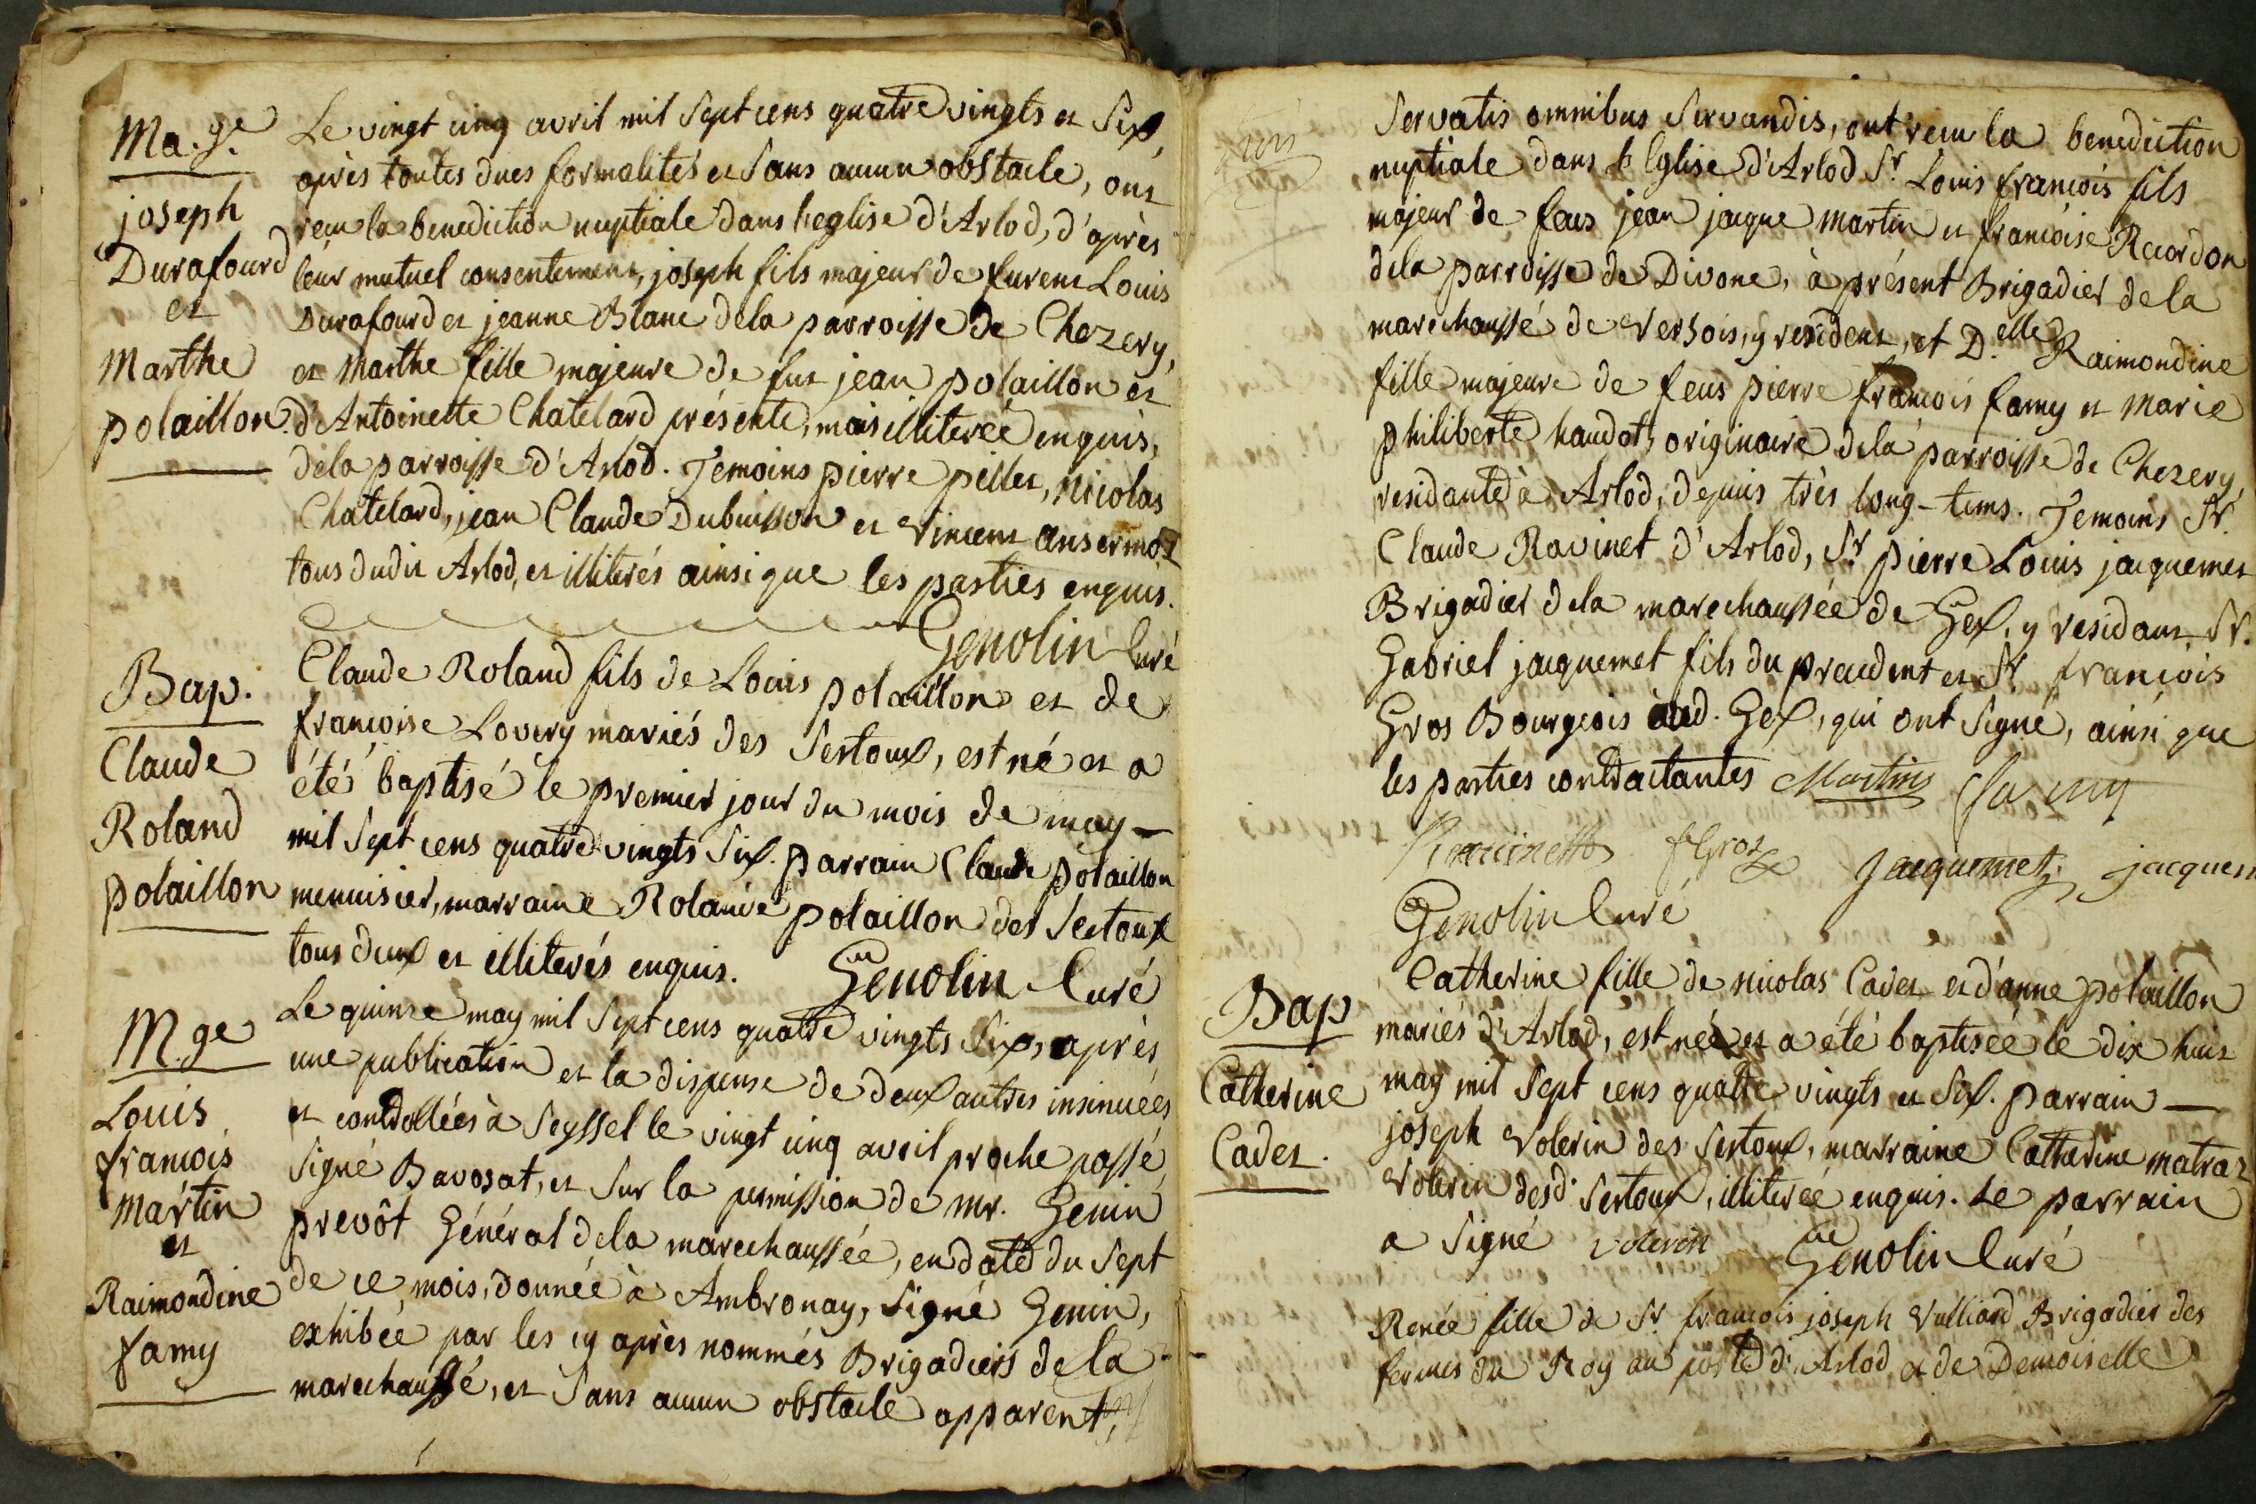 Ma.ge
joseph
Durafourd
et
Marthe
polaillon.
Le vingt cinq avril mil sept cens quatre vingts et six,
après toutes dues formalités et sans aucun obstacle, ont
recu la benediction nuptiale dans l'eglise d'Arlod, d'après
leur mutuel consentement, joseph fils majeur de furent Louis
Durafourd et jeanne Blanc dela parroisse de Chezery,
et Marthe fille majeure de fut jean polaillon et
d'Antoinette Chatelard présente, mais illiterée enquis,
dela parroisse d'Arlod. Temoins pierre pillet, Nicolas
Chatelard, jean Claude Dubuisson et Vincent ansermoz
tous dudit Arlod, et illiterés ainsi que les parties enquis.
Genolin Curé
Bap.
Claude
Roland
polaillon
Claude Roland fils de Louis polaillon et de
francoise Lovery mariés des Sertoux, est né et a
été baptisé le premier jour du mois de may
mil sept cens quatre vingts six. parrain Claude polaillon
menuisier, marraine Rolande polaillon des Sertoux
tous deux et illiterés enquis. Genolin Curé
M.ge
Louis
francois
Martin
et
Raimondine
famy
Le quinze may mil sept cens quatre vingts six, après
une publication et la dispense de deux autres insinuées
et controllées à Seyssel le vingt cinq avril proche passé,
signé Bavosat, et sur la permission de Mr. Genin
prevôt Général dela marechaussée, en date du sept
de ce mois, donnée à Ambronay, signé Genin,
exhibée par les cy après nommés Brigadiers de la
marechaussé, et sans aucun obstacle apparent,
Servatis omnibus Servandis, ont recu la benediction
nuptiale dans l'Eglise d'Arlod Sr. Louis francois fils
majeur de feus jean jacque Martin et francoise Recordon
dela parroisse de Divone, à présent Brigadier de la
marechaussé de Versois, y resident, et D.elle Raimondine
fille majeure de feus pierre francois famy et Marie
philiberte haudot, originaire dela parroisse de Chezery,
residante à Arlod, depuis très long-tems. Temoins Sr.
Claude Ravinet d'Arlod, Sr. pierre Louis jacquemet
Brigadier dela marechaussée de Gex, y residant, Sr.
Gabriel jacquemet fils du precedent et Sr. francois
Gros Bourgeois aud. Gex, qui ont signé, ainsi que
les parties contractantes Martin famy
fGros Jacquemet jacquem
Genolin Curé
Bap
Catherine
Cadet.
Catherine fille de Nicolas Cadet et d'anne polaillon
mariés d'Arlod, est née et a été baptisée le dix huit
may mil sept cens quatre vingts et six. parrain
joseph Volerin des Sertoux, marraine Catherine matraz
Volerin desd. Sertoux, illiterée enquis. Le parrain
a signé volerin Genolin Curé
Renée fille de Sr. francois joseph Vulliard Brigadier des
fermes du Roy au poste d'Arlod et de Demoiselle